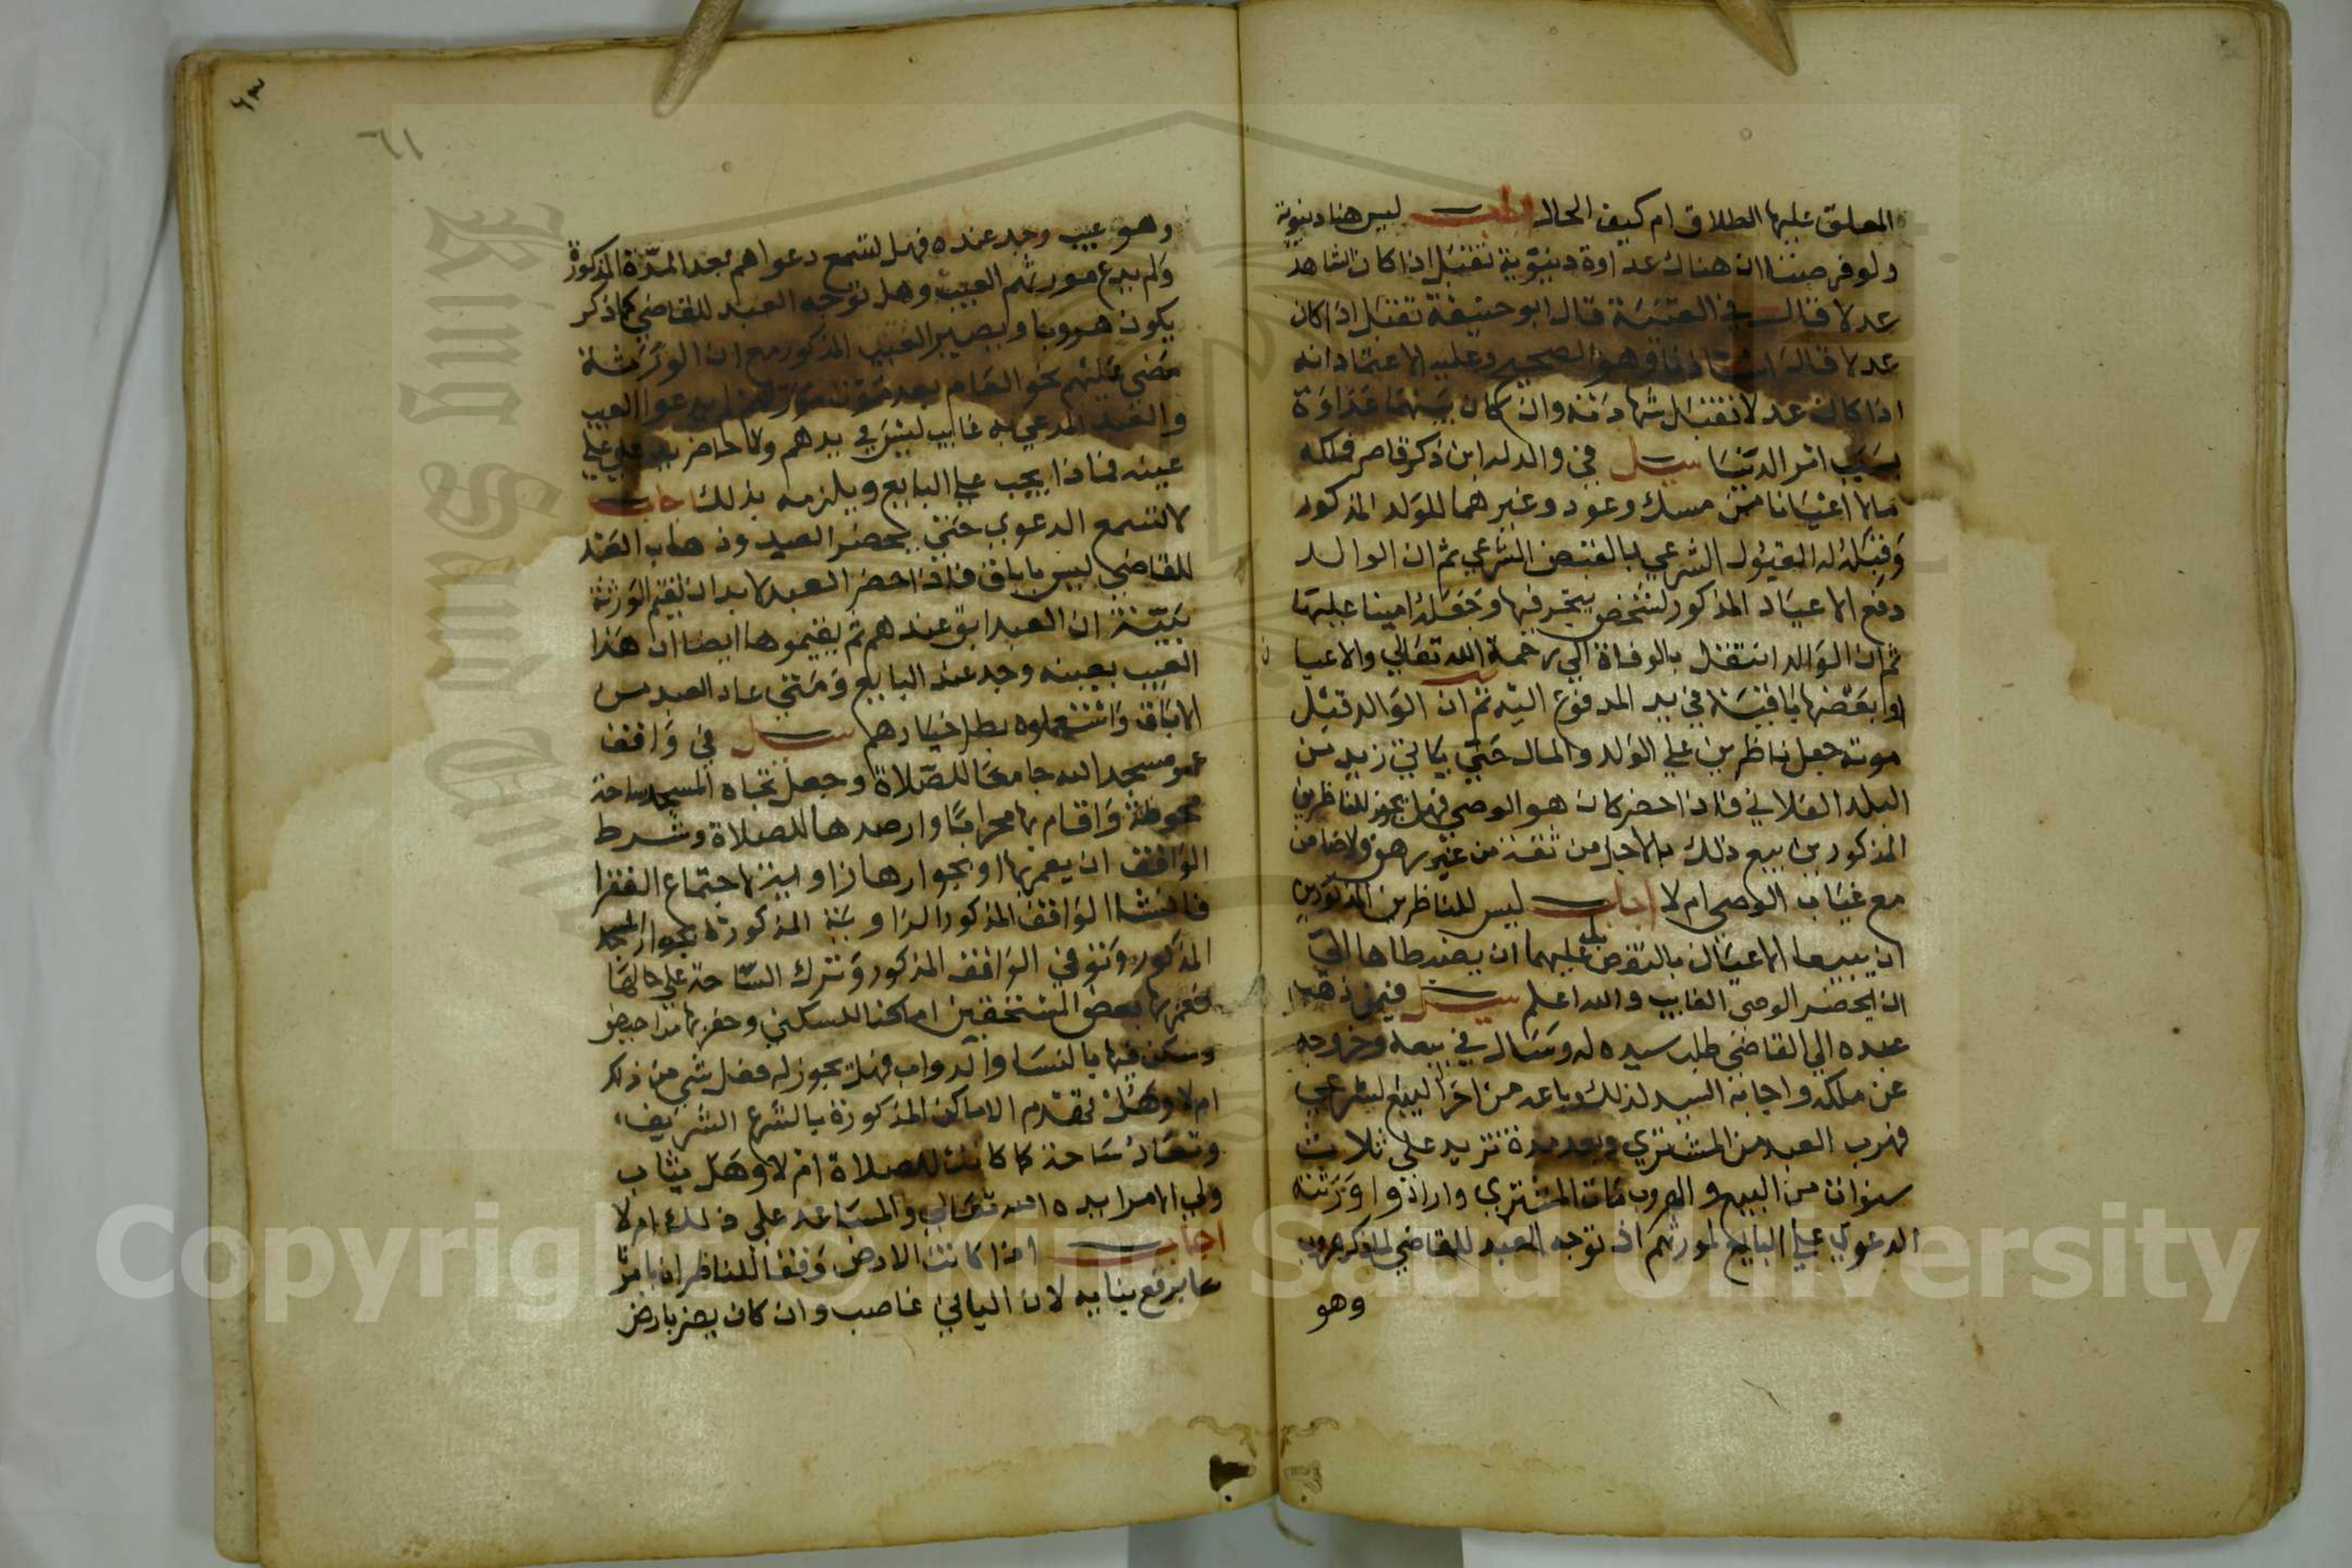 المعلق عليها الطلاق ام كيف الحال اجاب ليس هنا دينوية
ولو فرضنا ان هناك عداوة دينوية تقبل اذا كان الشاهد
عدلا قال في القنية قال ابو حنيفة تقبل اذا كان
عدلا قال استاذنا وهو الصحيح وعليه الاعتماد انه
اذا كان عدلا تقبل شهادته وان كان بينهما عداوة
بسبب امر الدنيا سيل في والد له ابن ذكر قاصر فملكه
مالا اعيانا من مسك وعود وغيرهما للولد المذكور
وقبل له القبول الشرعي بالقبض الشرعي ثم ان الوالد
دفع الاعيان المذكور لشخص يتجر فيها وجعله امينا عليها
ثم ان الوالد انتقل بالوفاة الي رحمة الله تعالي والاعيا
او بعضها باقية في يد المدفوع اليه ثم ان الوالد قبل
موته جعل ناظرين علي الولد والمال حتي ياتي زيد من
البلد الفلاني فاذا حضر كان هو الوصي فهل يجوز للناظرين
المذكورين بيع ذلك بالاجل من ثقة من غير رهن ولا ضامن
مع غياب الوصي ام لا اجاب ليس للناظرين المذكورين
ان يبيعا الاعيان بالنقص بل عليهما ان يضبطاها الي
ان يحضر الوصي الغايب والله اعلم سيل فيمن ذهب
عبده الي القاضي طلب سيده له وسال في بيعه وخروجه
عن ملكه واجابة السيد لذلك وباعه من اخر البيع الشرعي
فهرب العبد من المشتري وبعد مدة تزيد علي ثلاث
سنوات من البيع والهروب مات المشتري وارادوا ورثته
الدعوي علي البايع لمورثهم اذ توجه العبد للقاضي لما ذكر هروب
وهو
٦١
وهو عيب وجد عنده فهل تسمع دعواهم بعد المدة المذكورة
ولم يدع مورثهم العيب وهل توجه العبد للقاضي كما ذكر
يكون هروبا ويصير العيب المذكور مع ان الورثة
مضي عليهم نحو العام بعد موت مورثهم لم يدعوا العيب
والعبد المدعي به غايب ليس في يدهم ولا حاضر يدعي علي
عينه فماذا يجب علي البايع ويلزمه بذلك اجاب
لا تسمع الدعوي حتي يحضر العبد وذهاب العبد
للقاضي ليس باباق فاذا حضر العبد لا بد ان يقيم الورثة
بينة ان العبد ابق عندهم ثم يقيموها ايضا ان هذا
العيب بعينه وجد عند البايع ومتي عاد العبد من
الاباق واستعملوه بطل خيارهم سيل في واقف
عمر مسجد الله جامعا للصلاة وجعل تجاه المسجد ساحة
محوطة واقام بها محرابا وارصدها للصلاة وشرط
الواقف ان يعمر بها او بجوارها زاوية لاجتماع الفقرا
فانشا الواقف المذكور الزاوية المذكورة بجوار المسجد
المذكور وتوفي الواقف المذكور وترك الساحة علي حالها
فعمر بها بعض المستحقين اماكنا للسكني وحفر بها مراحيض
وسكن فيها بالنسا والدواب فهل يجوز له فعل شي من ذلك
ام لا وهل تهدم الاماكن المذكورة بالشرع الشريف
وتعاد ساحة كما كانت للصلاة ام لا وهل يثاب
ولي الامر ايده الله تعالي والمساعد علي ذلك ام لا
اجاب اذا كانت الارض وقفا للناظر ان يامر
برفع بنايه لان الباني غاصب وان كان يضر بارض